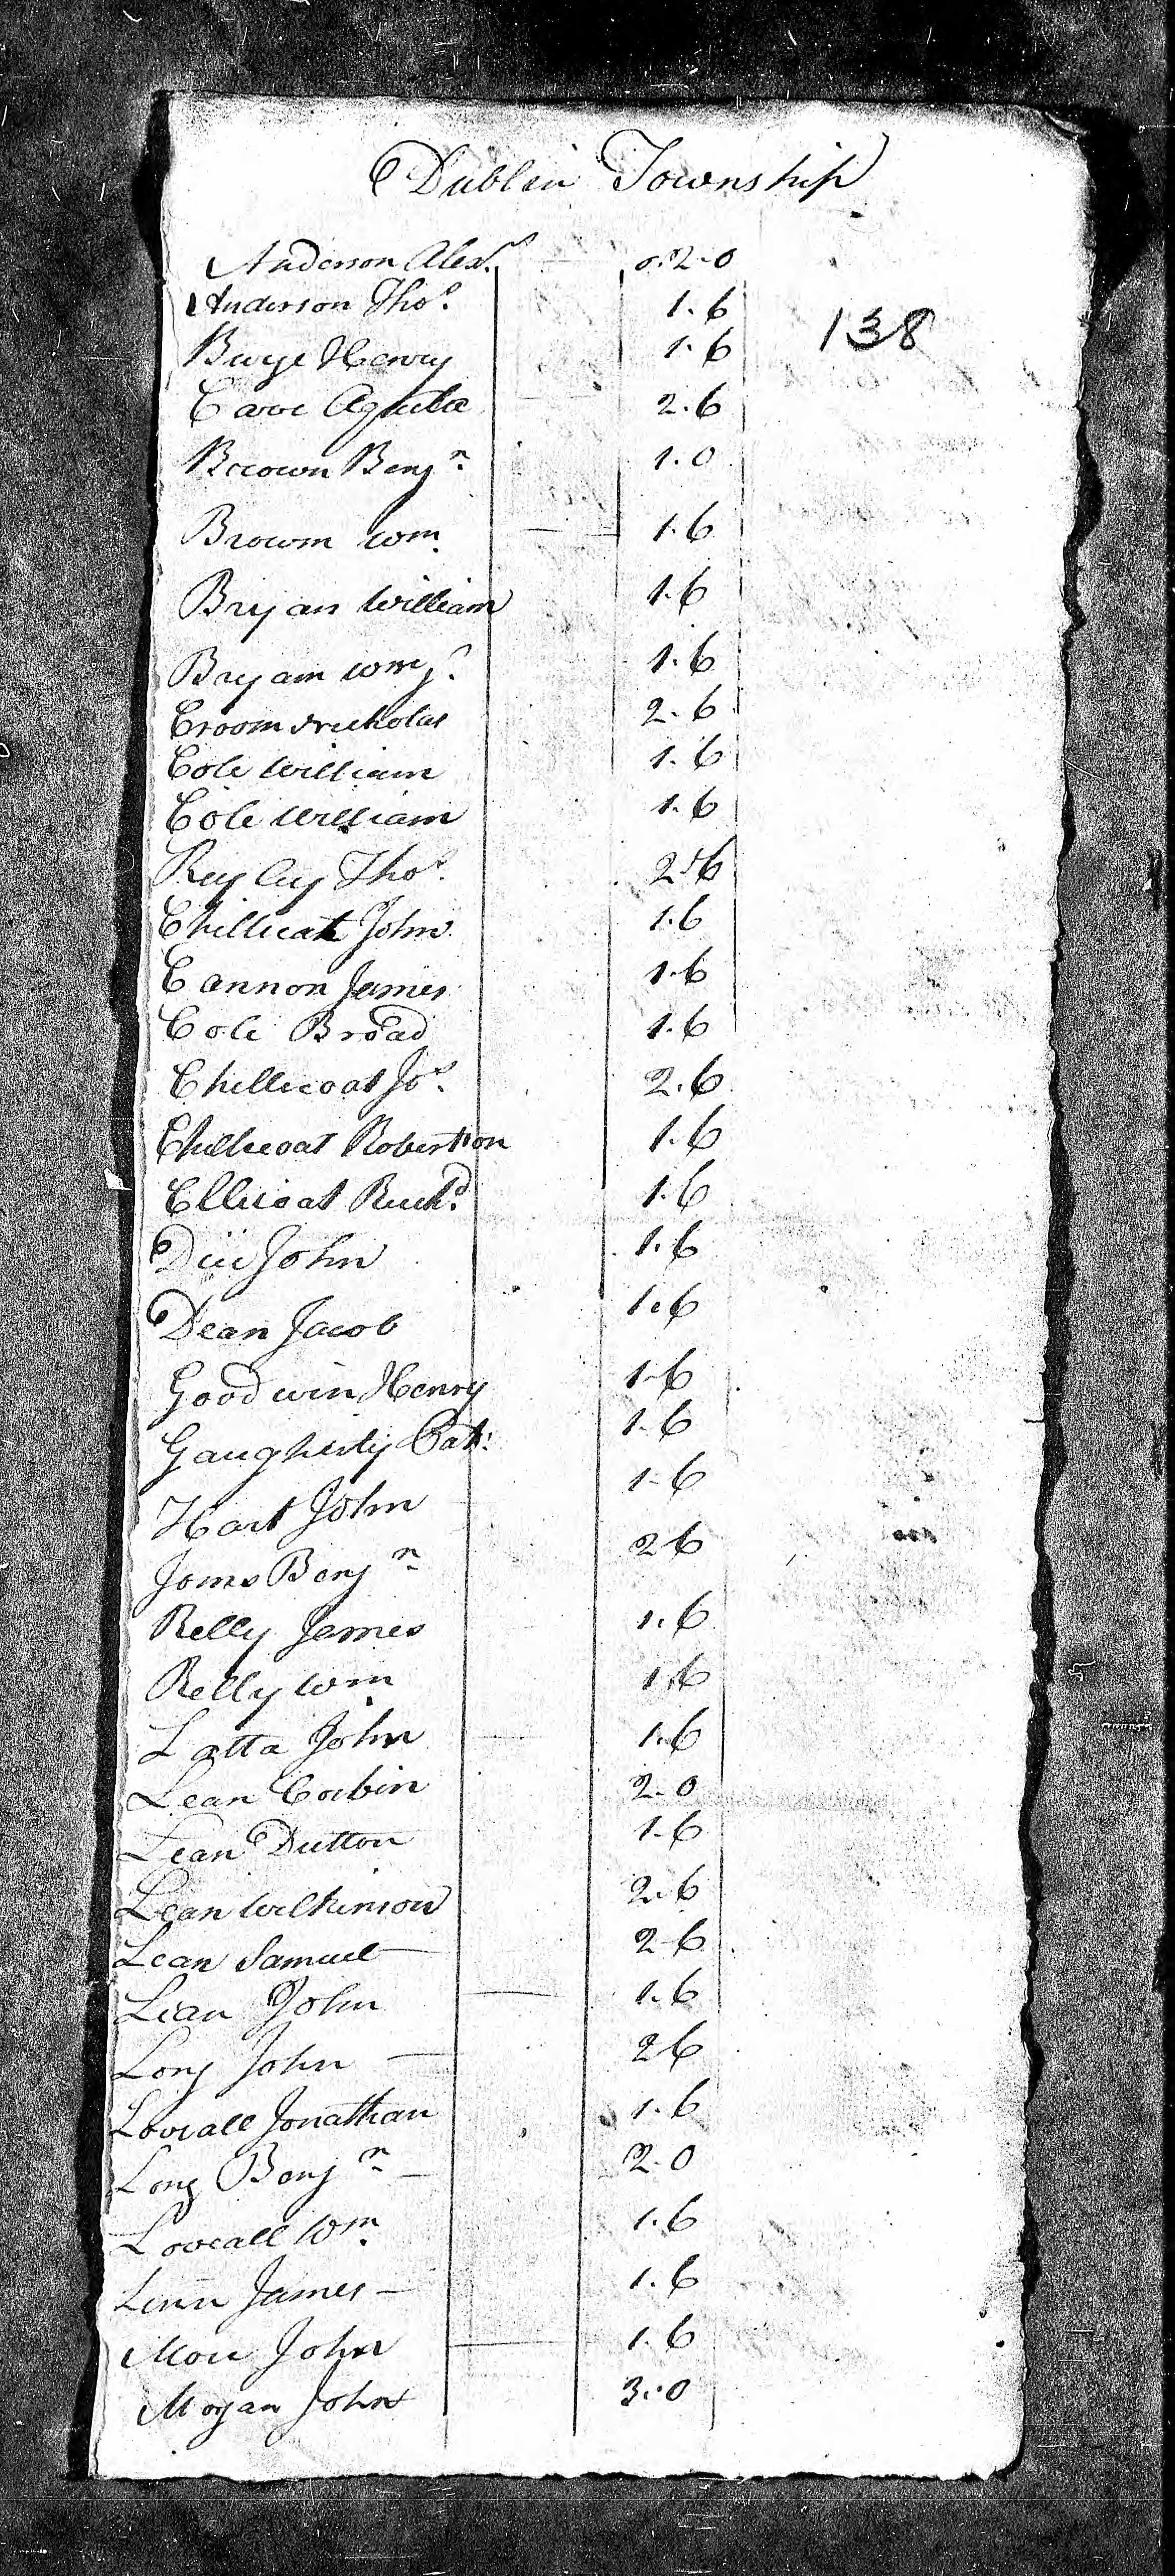 Dublin Township
Anderson Alexr. 0.2-0
Anderson Thos. 1.6
138
Burge Henry 1.6
Cave Aquila 2.6
Brown Benjn. 1.0
Brown Wm. 1.6
Bryan William 1.6
Bryan Wm Jr. 1.6
Croom Nicholas 2.6
Cole William 1.6
Cole William 1.6
Thos. 2.6
Chillicoat John 1.6
Cannon James 1.6
Cole Broad 1.6
Chillicoat Jos. 2.6
Chillicoat Robertson 1.6
Ellicoat Richd. 1.6
John 1.6
Dean Jacob 1.6
Goodwin Henry 1-6
Gaugherty Pat: 1.6
Hart John 1-6
Jones Benjn. 26
Kelly James 1.6
Kelly Wm 1.6
Latta John 1.6
Lean Corbin 2.0
Lean Dutton 1.6
Lean Wilkinson 2.6
Lean Samuel 2-6
Lean John 1.6
Long John 26
Loveall Jonathan 1.6
Long Benjn. 2.0
Loveall Wm. 1.6
Linn James 1.6
More John 1.6
Mogan John 3.0